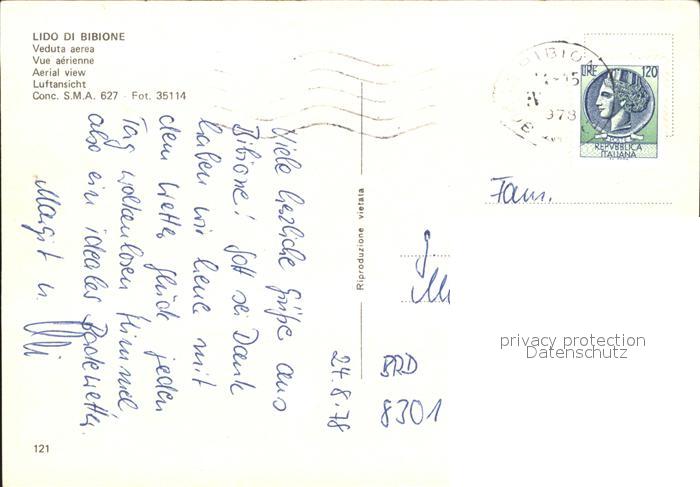 LIDO DI BIBIONE
Veduta aerea
Vue aérienne
Aerial view
Luftansicht
Conc. S.M.A. 627 - Fot. 35114
Viele herzliche Grüße aus
Bibione! Gott sei Dank
haben wir heuer mit
dem Wetter Glück, jeden
Tag wolkenlosen Himmel
also ein ideales Badewetter.
Margit u.
24.8.78
Riproduzione vietata
BIBIONE
978
LIRE 120
REPVBBLICA
ITALIANA
Fam.
BRD
8301
privacy protection
Datenschutz
121